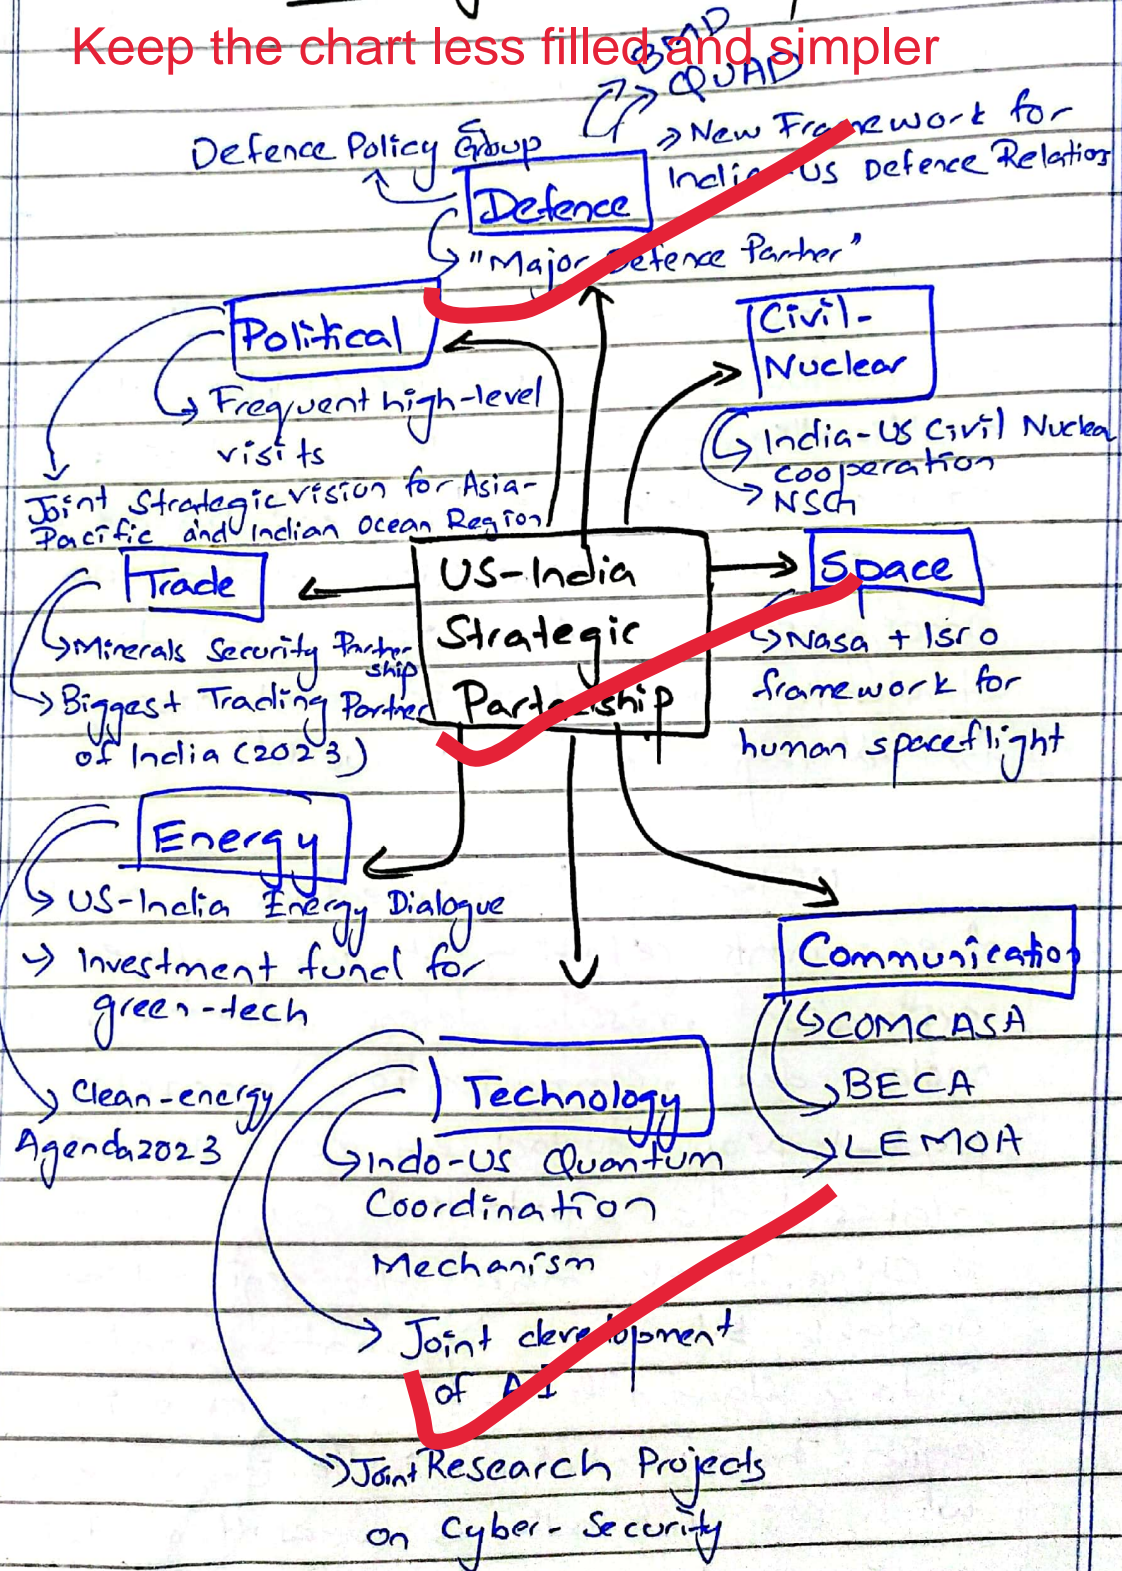 Keep the chart less filled and simpler
BMD
QUAD
New Framework for
India-US Defence Relations
Defence Policy Group
Defence
"Major Defence Partner"
Political
Frequent high-level
visits
Joint Strategic vision for Asia-
Pacific and Indian Ocean Region
Civil-
Nuclear
India-US Civil Nuclear
cooperation
NSG
US-India
Strategic
Partnership
Trade
Minerals Security Partner
ship
Biggest Trading Partner
of India (2023)
Space
Nasa + Isro
framework for
human spaceflight
Energy
US-India Energy Dialogue
Investment fund for
green-tech
Clean-energy
Agenda 2023
Communication
COMCASA
BECA
LEMOA
Technology
Indo-US Quantum
Coordination
Mechanism
Joint development
of AI
Joint Research Projects
on Cyber-Security